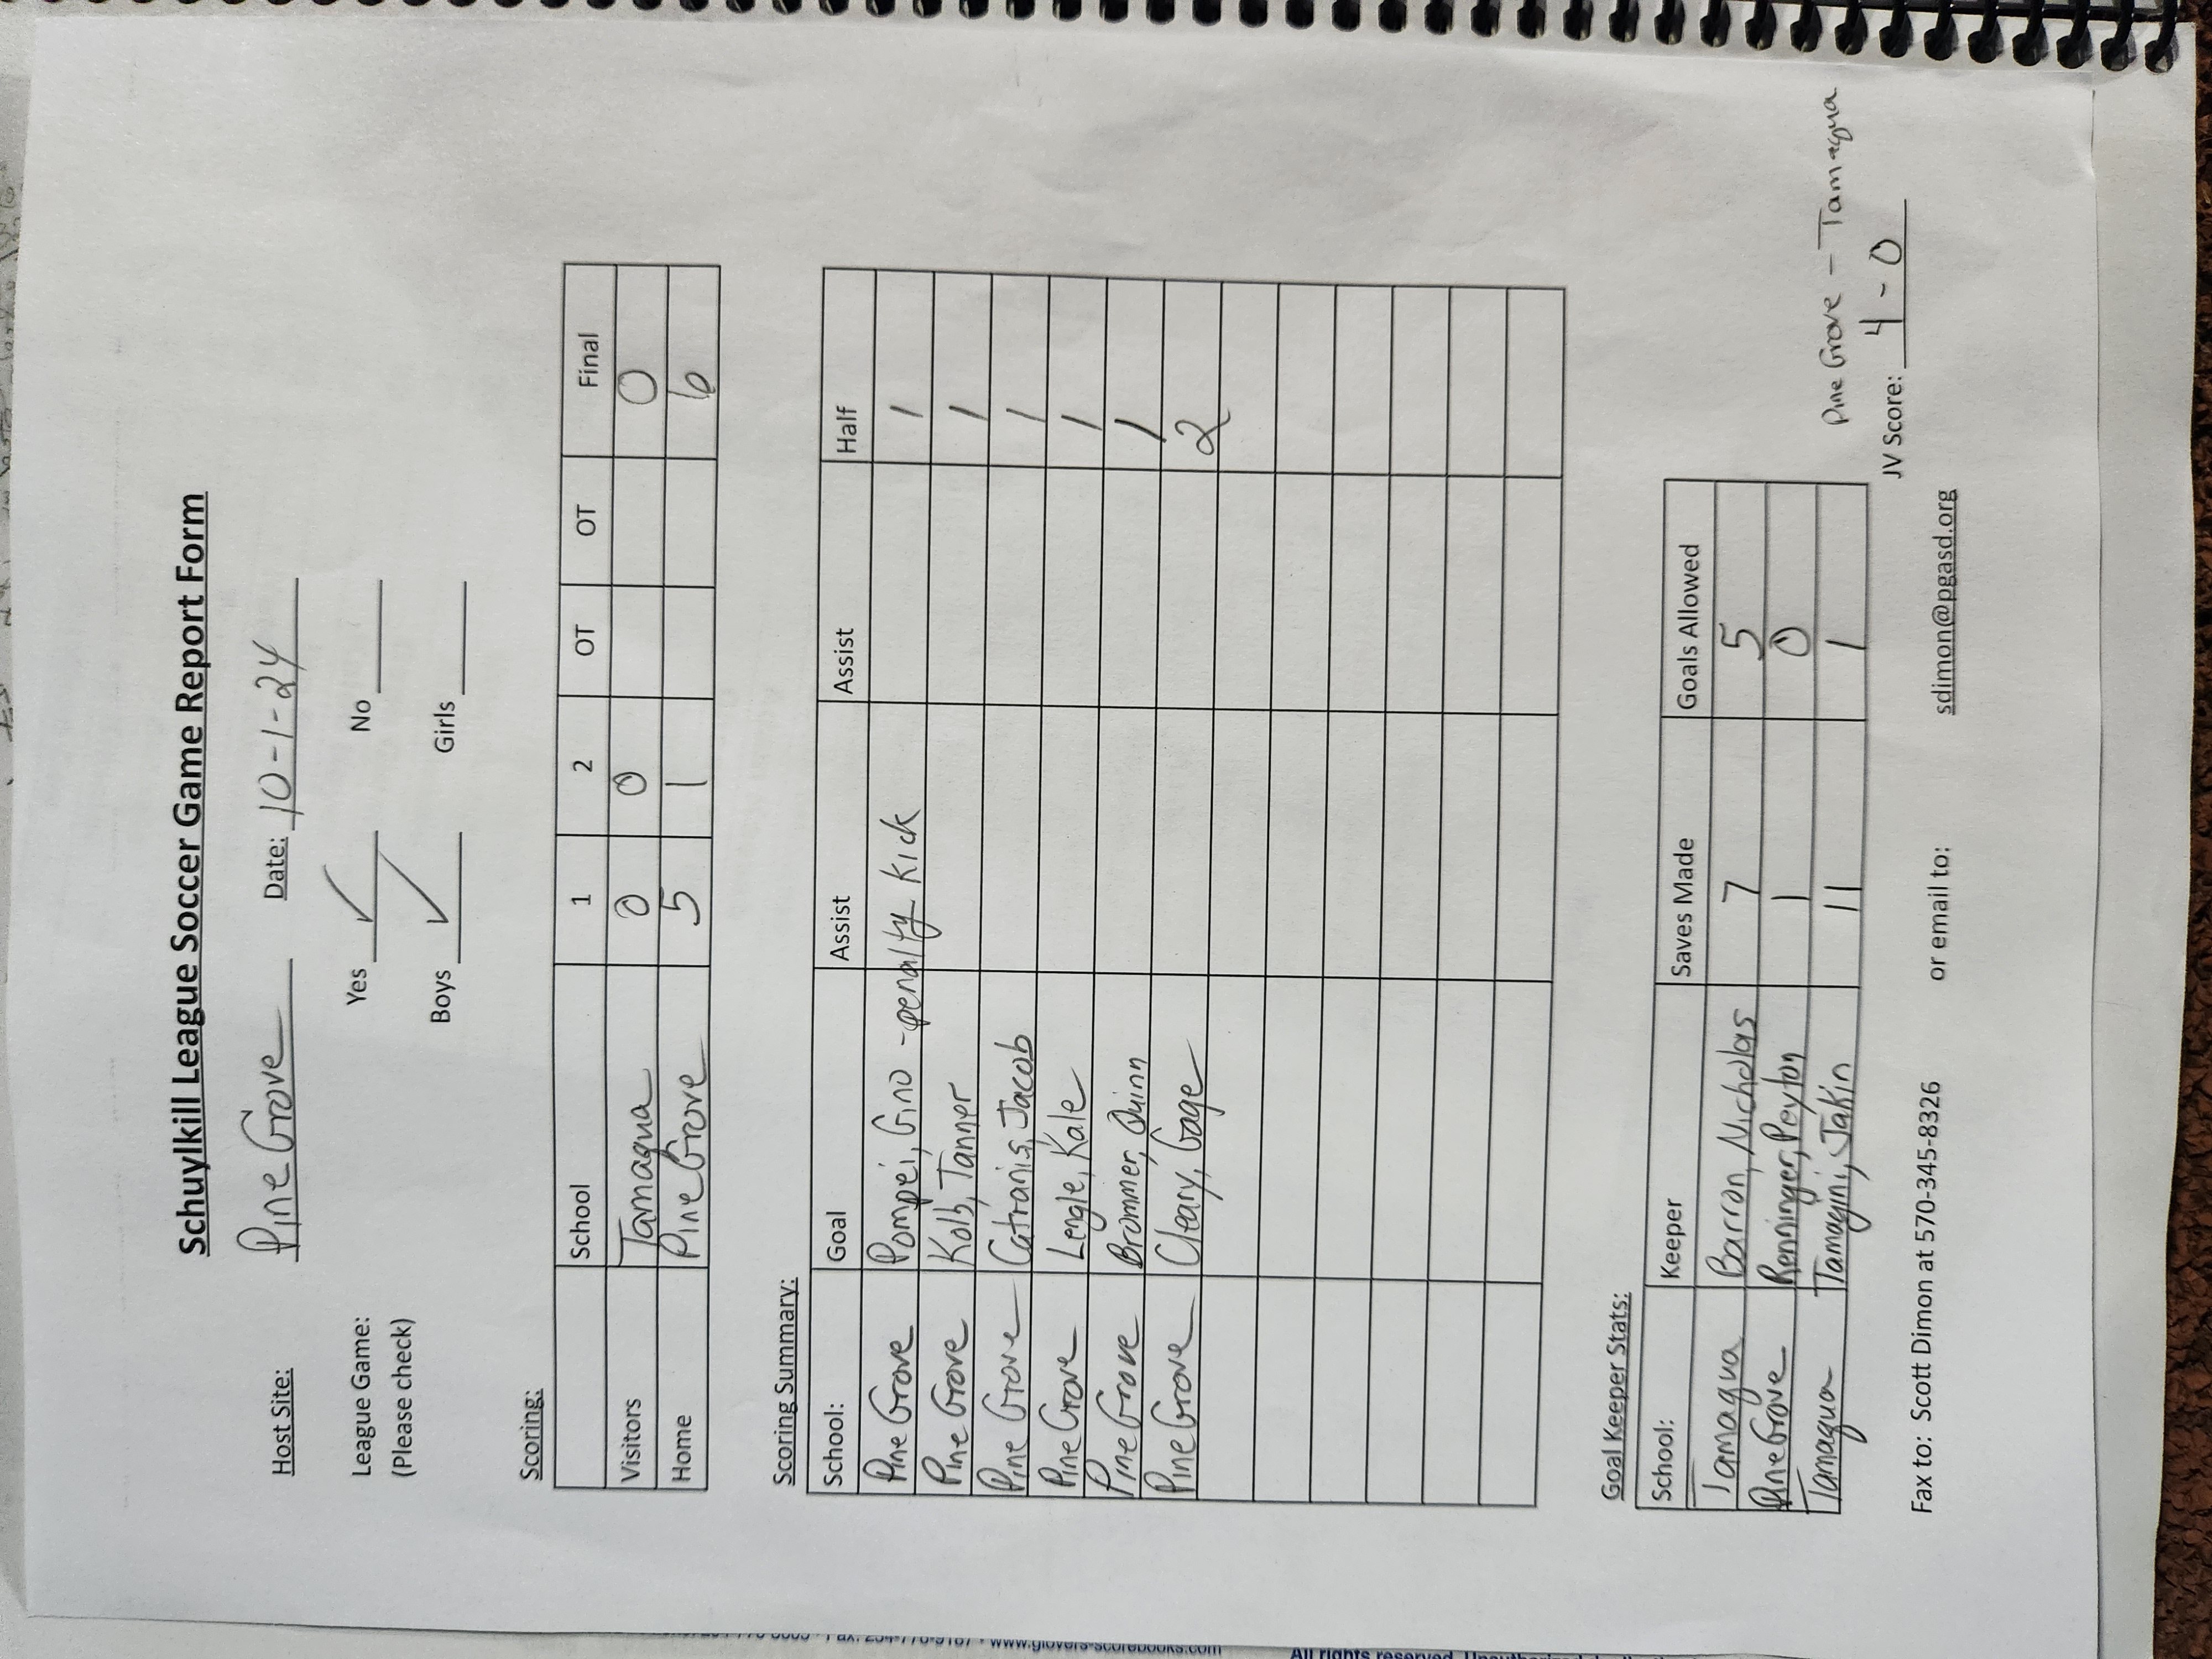 Schuylkill League Soccer Game Report Form
Host Site: Pine Grove Date: 10-1-24
League Game: Yes ✓ No
(Please check)
Boys ✓ Girls
Scoring:
School 1 2 OT OT Final
Visitors Tamaqua 0 0 0
Home Pine Grove 5 1 6
Scoring Summary:
School: Goal Assist Assist Half
Pine Grove Pompei, Gino - penalty kick 1
Pine Grove Kolb, Tanner 1
Pine Grove Catranis, Jacob 1
Pine Grove Lengle, Kale 1
Pine Grove Brommer, Quinn 1
Pine Grove Cleary, Gage 2
Goal Keeper Stats:
School: Keeper Saves Made Goals Allowed
Tamaqua Barron, Nicholas 7 5
Pine Grove Renninger, Peyton 1 0
Tamaqua Tamagini, Jakin 11 1
Pine Grove - Tamaqua
JV Score: 4 - 0
Fax to: Scott Dimon at 570-345-8326 or email to: sdimon@pgasd.org
www.glovers-scorebooks.com
All rights reserved.